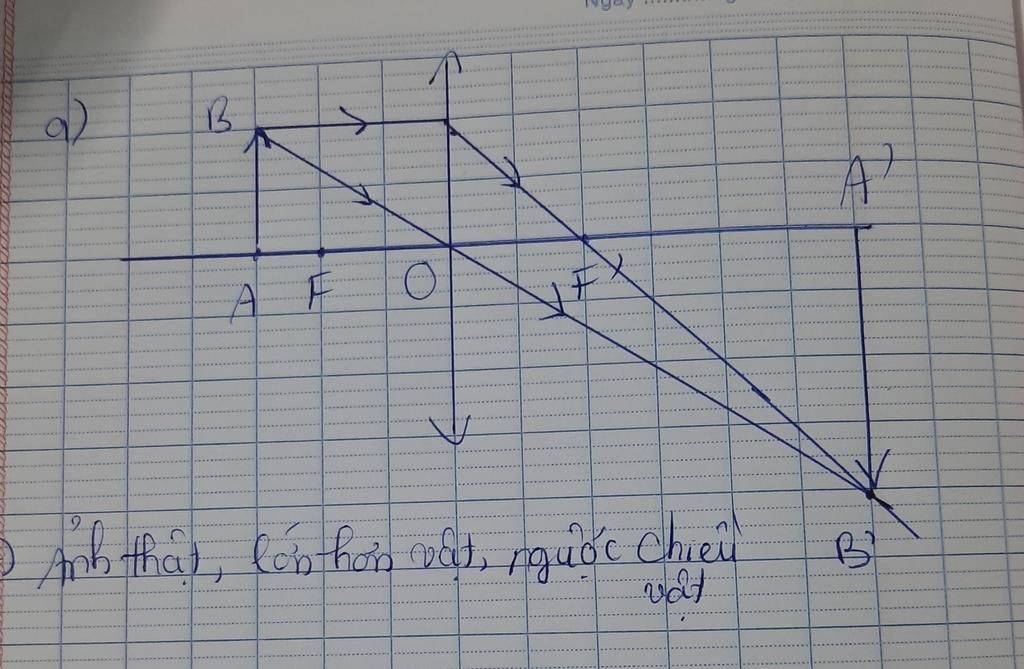 Ngày
a)
B
A'
A F O F'
B'
) Ảnh thật, lớn hơn vật, ngược chiều
vật